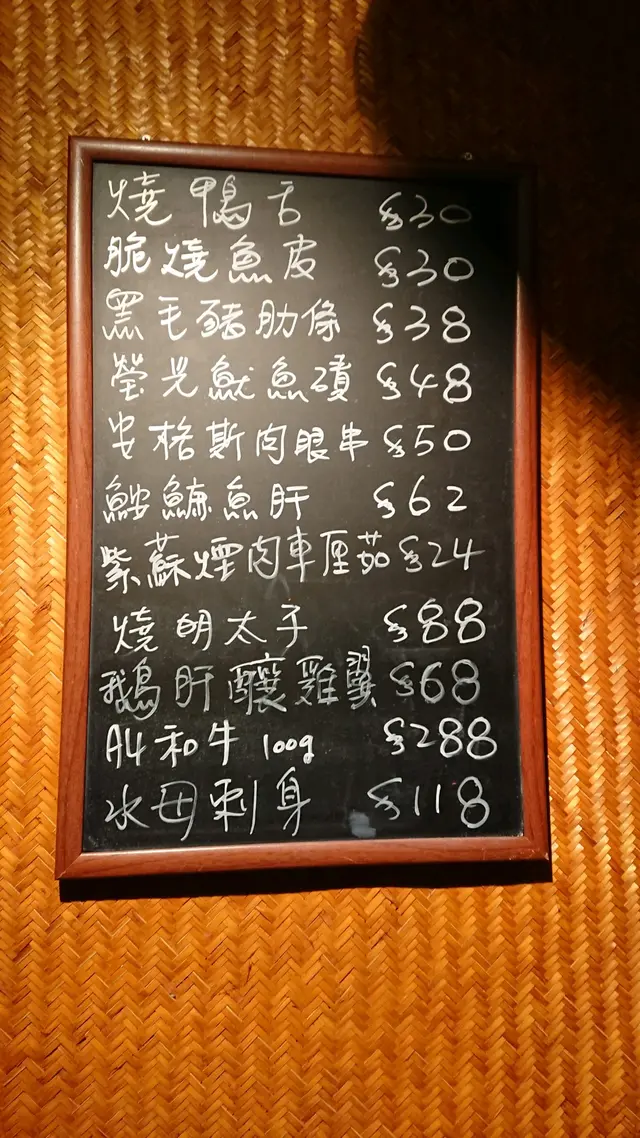 燒鴨舌 $30
脆燒魚皮 $30
黑毛豬肋條 $38
螢光魷魚漬 $48
安格斯肉眼串 $50
鮟鱇魚肝 $62
紫蘇煙肉車厘茄 $24
燒明太子 $88
鵝肝釀雞翼 $68
A4和牛 100g $288
水母刺身 $118